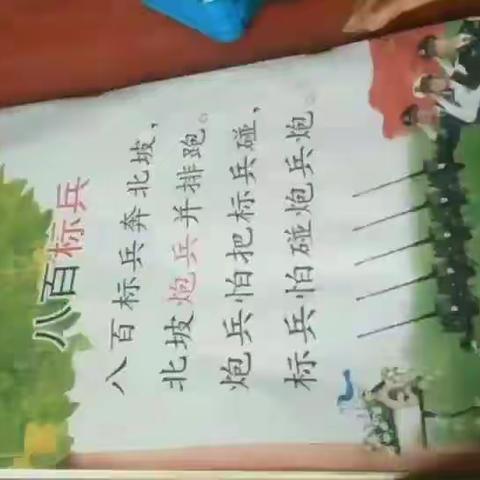 八百标兵
八百标兵奔北坡，
北坡炮兵并排跑。
炮兵怕把标兵碰，
标兵怕碰炮兵炮。